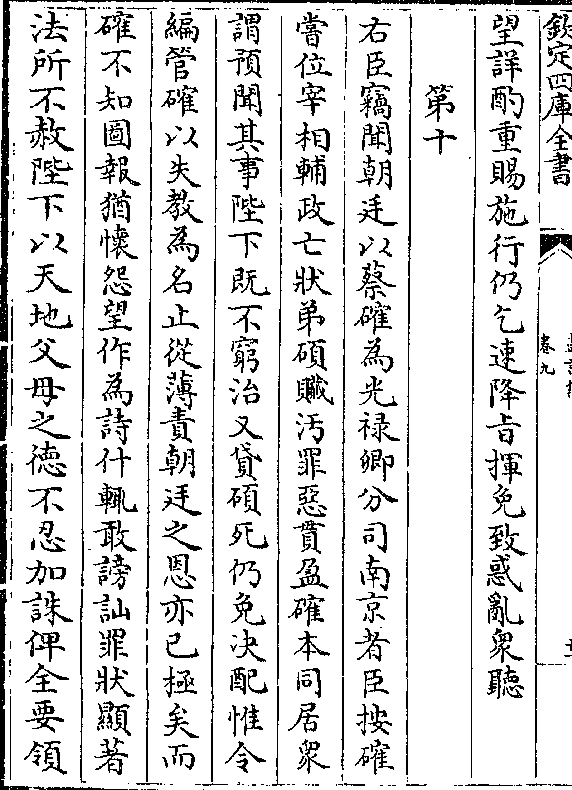 欽定四庫全書
卷九
望詳酌重賜施行仍乞速降㫖揮免致惑亂衆聽
第十
右臣竊聞朝廷以蔡確為光禄卿分司南京者臣按確
嘗位宰相輔政亡狀弟碩贓汚罪惡貫盈確本同居衆
謂預聞其事陛下既不窮治又貸碩死仍免决配惟令
編管確以失教為名止從薄責朝廷之恩亦已極矣而
確不知圖報猶懷怨望作為詩什輒敢謗訕罪狀顯著
法所不赦陛下以天地父母之徳不忍加誅俾全要領